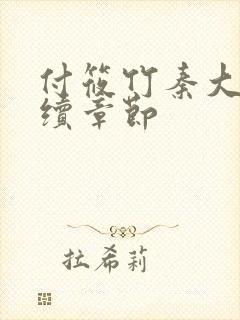 付筱竹秦大
續章節
拉希莉